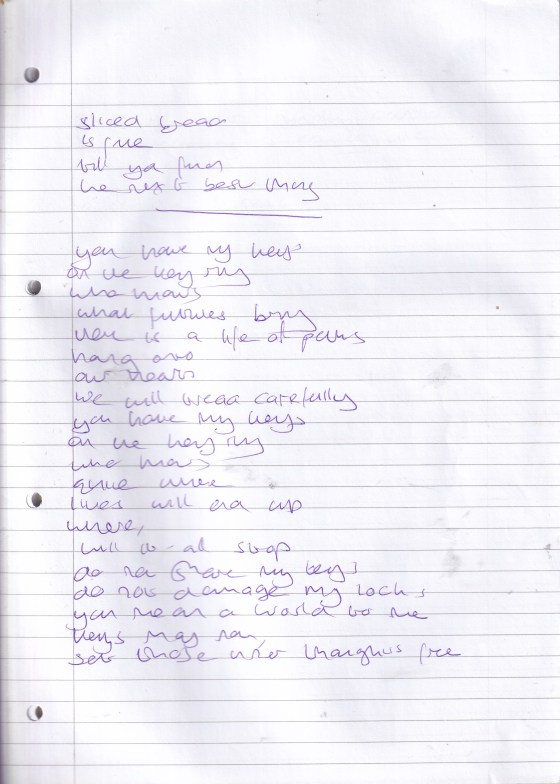 sliced bread
is fine
till ya find
the next best thing
you have my keys
on the key ring
who knows
what futures bring
here is a life of
hand
our hearts
we will tread carefully
you have my keys
on the key ring
who knows
quite where
lives will end up
where,
will it all stop
do not share my keys
do not damage my locks
you mean a world to me
keys may not,
set those with thoughts free